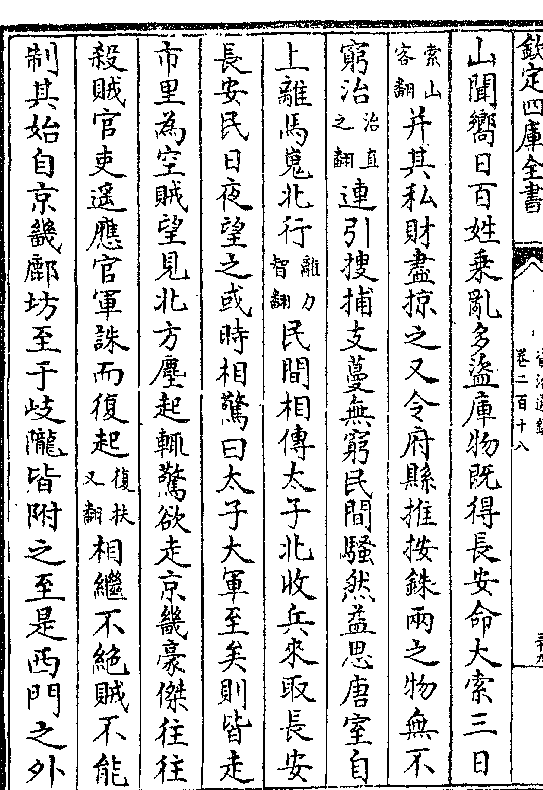 欽定四庫全書
卷二百十八
山聞嚮日百姓乗亂多盜庫物既得長安命大索三日
索山客翻并其私財盡掠之又令府縣推按銖兩之物無不
窮治治直之翻連引搜捕支蔓無窮民間騷然益思唐室自
上離馬嵬北行離力智翻民間相傳太子北收兵來取長安
長安民日夜望之或時相驚曰太子大軍至矣則皆走
市里為空賊望見北方塵起輒驚欲走京畿豪傑往往
殺賊官吏遥應官軍誅而復起復扶又翻相繼不絶賊不能
制其始自京畿鄜坊至于岐隴皆附之至是西門之外